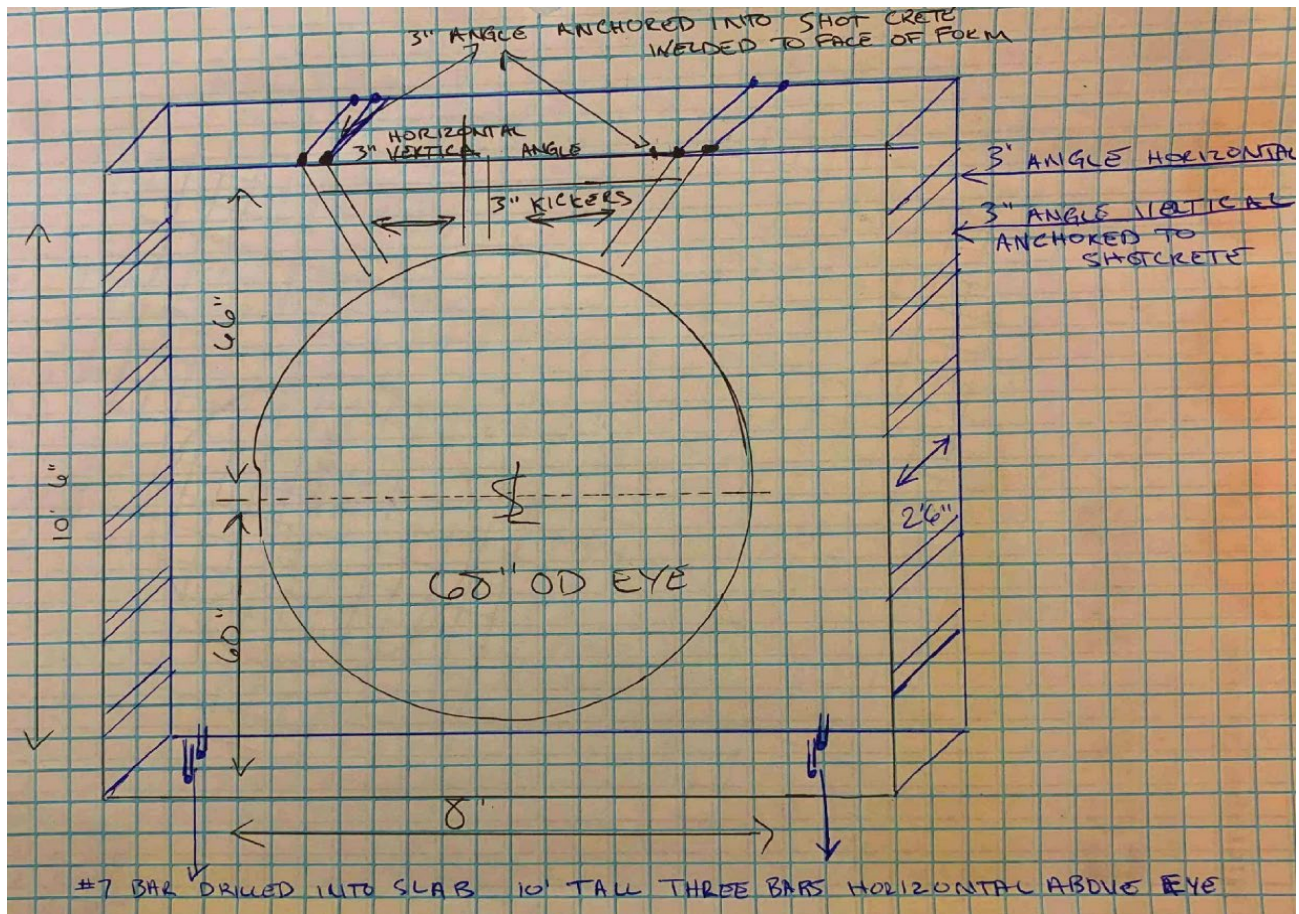 3" ANGLE ANCHORED INTO SHOT CRETE
WELDED TO FACE OF FORM
HORIZONTAL
3" VERTICAL ANGLE
3" KICKERS
3' ANGLE HORIZONTAL
3" ANGLE VERTICAL
ANCHORED TO
SHOTCRETE
66"
10' 6"
2'6"
68" OD EYE
60"
8'
#7 BAR DRILLED INTO SLAB 10' TALL THREE BARS HORIZONTAL ABOVE EYE